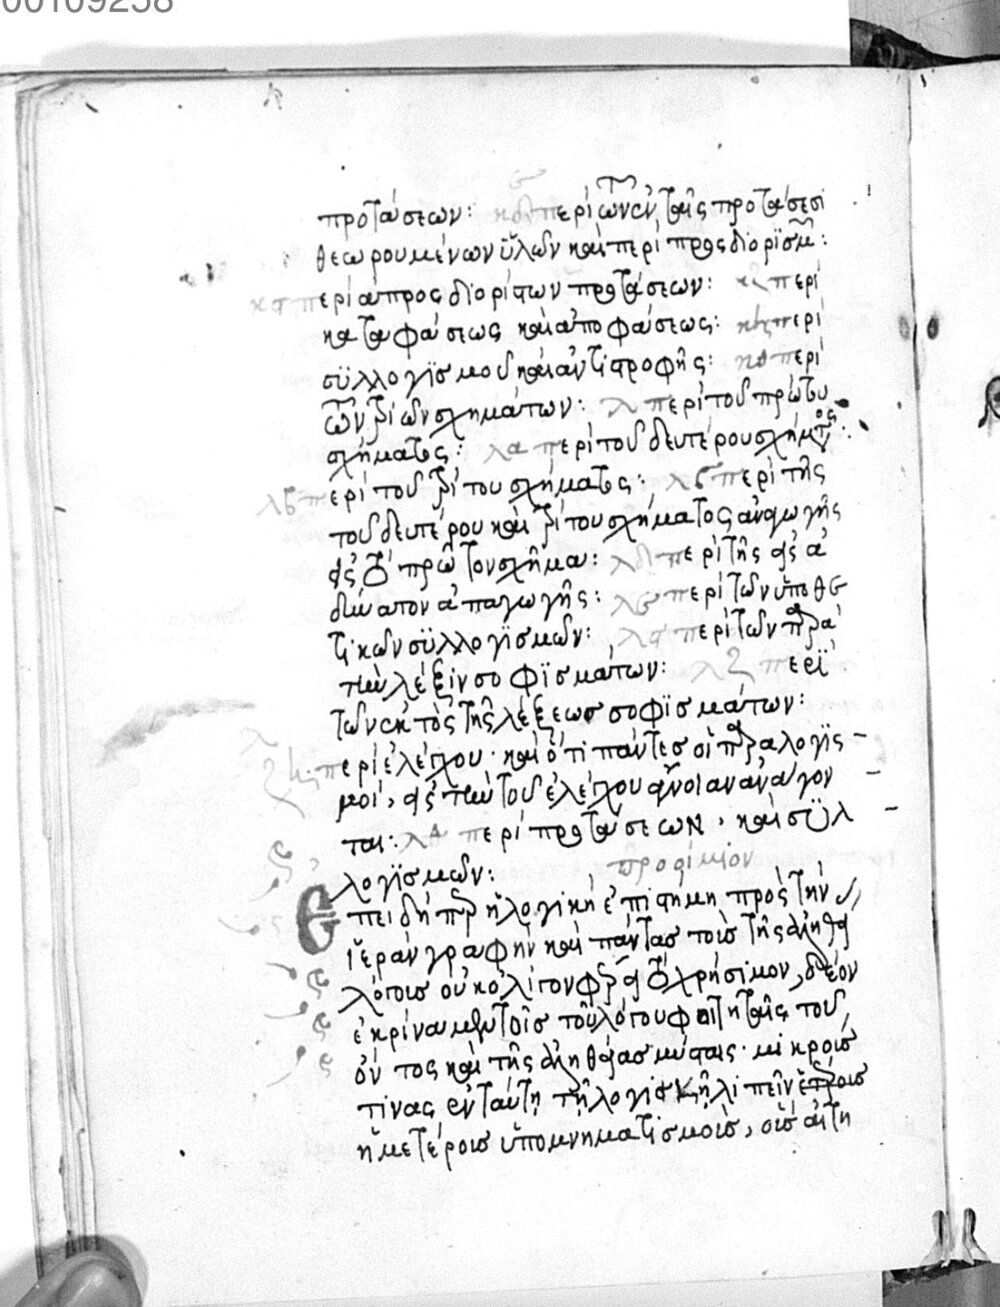 00109258
προτάσεων: κδ περὶ τῶν ἐν ταῖς προτάσεσι
θεωρουμένων ὑλῶν καὶ περὶ προσδιορισμ:
κϛ περὶ ἀπροσδιορίστων προτάσεων: κζ περὶ
καταφάσεως καὶ ἀποφάσεως: κη περὶ
συλλογϊσμοῦ καὶ ἀντιστροφῆς: κθ περὶ
τῶν τριῶν σχημάτων: λ περὶ τοῦ πρώτου
σχήματος: λα περὶ τοῦ δευτέρου σχήματος:
λβ περὶ τοῦ τρίτου σχήματος: λγ περὶ τῆς
τοῦ δευτέρου καὶ τρίτου σχήματος ἀναγωγῆς
εἰς τὸ πρῶτον σχῆμα: λδ περὶ τῆς εἰς ἀ
δύνατον ἀπαγωγῆς: λε περὶ τῶν ὑποθε
τικῶν συλλογϊσμῶν: λϛ περὶ τῶν παρὰ
τὴν λέξιν σοφϊσμάτων: λζ περὶ
τῶν ἐκτὸς τῆς λέξεως σοφϊσμάτων:
λη περὶ ἐλέγχου· καὶ ὅτι πάντες οἱ παραλογϊς
μοί, εἰς τὴν τοῦ ἐλέγχου ἄγνοιαν ἀνάγον
ται· λθ περὶ προτάσεων, καὶ συλ
λογϊσμῶν: προοίμιον
Επειδήπερ ἡ λογικὴ ἐπιστήμη πρὸς τὴν
ἱερὰν γραφὴν καὶ πάντας τοὺς τῆς ἀληθεί
λόγους οὐκ ὀλίγον φέρει τὸ χρήσιμον, δέον
ἐκρίναμεν τοῖς τοῦ λόγου φοιτηταῖς τοῦ
ὄντος καὶ τῆς ἀληθείας μύσταις· μικρούς
τινας ἐν ταύτῃ τῇ λογικῇ λιπεῖν ἑτέροις
ἡμετέροις ὑπομνηματισμοὺς, οἷς αὐτη